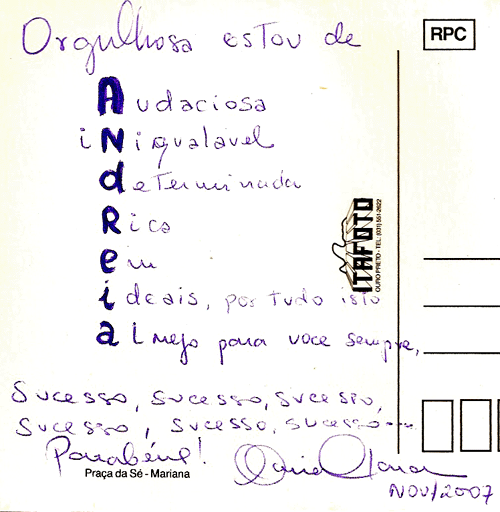 Orgulhosa estou de
RPC
Audaciosa
iNigualável
determinada
Rica
em
ideais, por tudo isto
almejo para você sempre,
ITAFOTO
OURO PRETO - TEL. (031) 551-2622
Sucesso, sucesso, sucesso,
sucesso, sucesso, sucesso...
Parabéns!
Praça da Sé - Mariana
NOV/2007